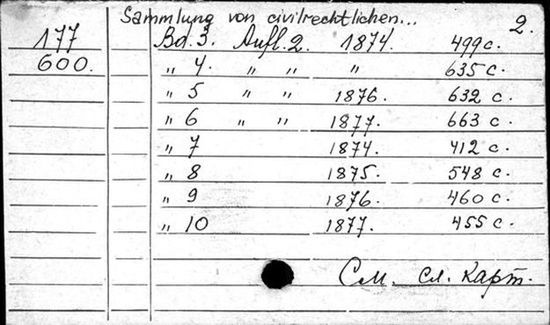 Sammlung von civilrechtlichen... 2.
177 Bd. 3. Aufl. 2. 1874. 499 с.
600. „ 4. „ „ „ 635 с.
„ 5 „ „ 1876. 632 с.
„ 6 „ „ 1877. 663 с.
„ 7 1874. 412 с.
„ 8 1875. 548 с.
„ 9 1876. 460 с.
„ 10 1877. 455 с.
См. сл. карт.